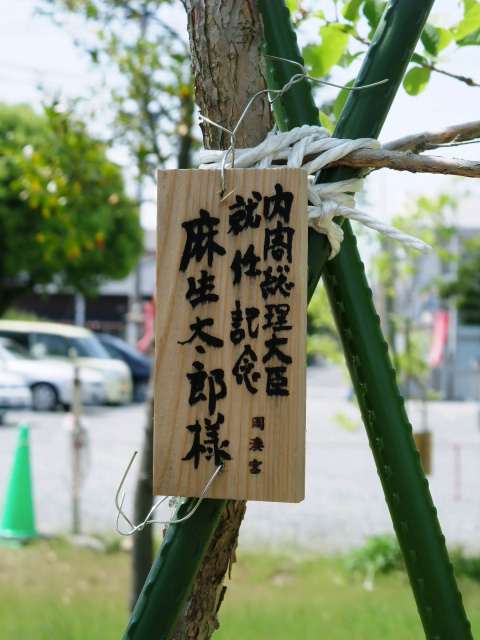 内閣総理大臣
就任記念
麻生太郎様
岡湊宮